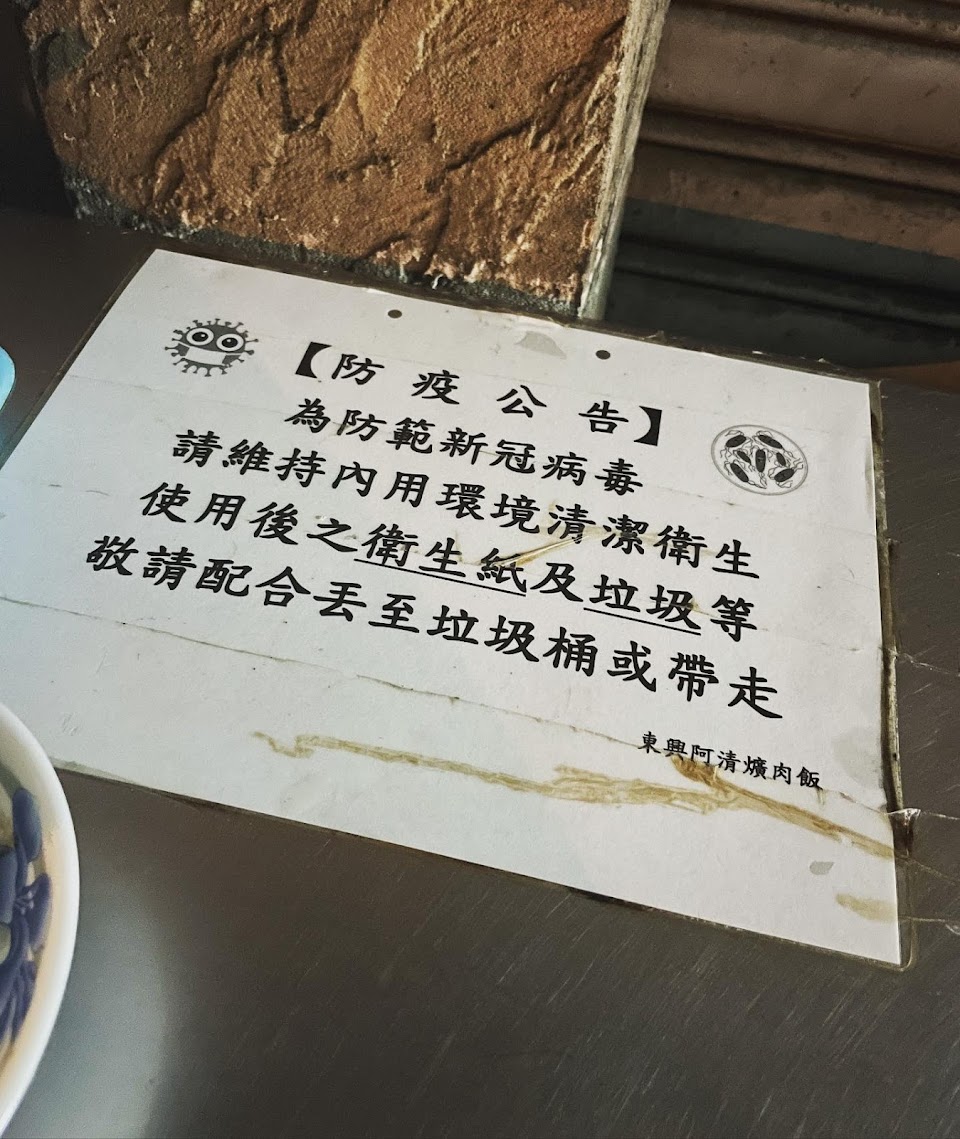 【防疫公告】
為防範新冠病毒
請維持內用環境清潔衛生
使用後之衛生紙及垃圾等
敬請配合丟至垃圾桶或帶走
東興阿清爌肉飯